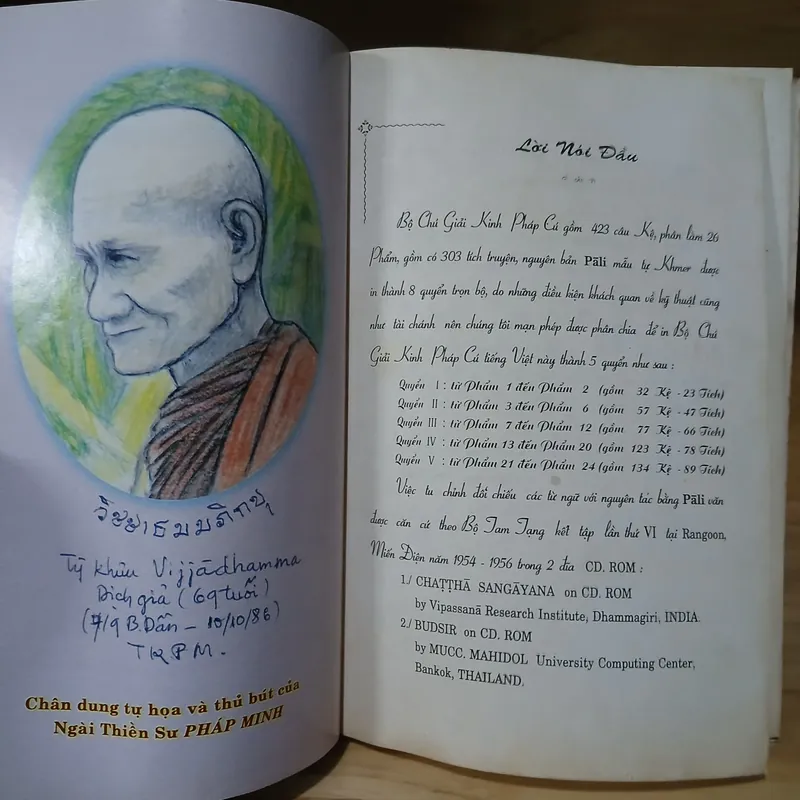 วิชฺชาธมฺมภิกฺขุ
Tỳ khưu Vijjādhamma
Dịch giả (69 tuổi)
(7/9 B.Dần - 10/10/86)
TKPM.
Chân dung tự họa và thủ bút của
Ngài Thiền Sư PHÁP MINH
Lời Nói Đầu
Bộ Chú Giải Kinh Pháp Cú gồm 423 câu Kệ, phân làm 26
Phẩm, gồm có 303 tích truyện, nguyên bản Pāli mẫu tự Khmer được
in thành 8 quyển trọn bộ, do những điều kiện khách quan về kỹ thuật cũng
như tài chánh nên chúng tôi mạn phép được phân chia để in Bộ Chú
Giải Kinh Pháp Cú tiếng Việt này thành 5 quyển như sau :
Quyển I : từ Phẩm 1 đến Phẩm 2 (gồm 32 Kệ - 23 Tích)
Quyển II : từ Phẩm 3 đến Phẩm 6 (gồm 57 Kệ - 47 Tích)
Quyển III : từ Phẩm 7 đến Phẩm 12 (gồm 77 Kệ - 66 Tích)
Quyển IV : từ Phẩm 13 đến Phẩm 20 (gồm 123 Kệ - 78 Tích)
Quyển V : từ Phẩm 21 đến Phẩm 24 (gồm 134 Kệ - 89 Tích)
Việc tu chỉnh đối chiếu các từ ngữ với nguyên tác bằng Pāli văn
được căn cứ theo Bộ Tam Tạng kết tập lần thứ VI tại Rangoon,
Miến Điện năm 1954 - 1956 trong 2 đĩa CD. ROM :
1./ CHAṬṬHĀ SANGĀYANA on CD. ROM
by Vipassanā Research Institute, Dhammagiri, INDIA.
2./ BUDSIR on CD. ROM
by MUCC. MAHIDOL University Computing Center,
Bankok, THAILAND.